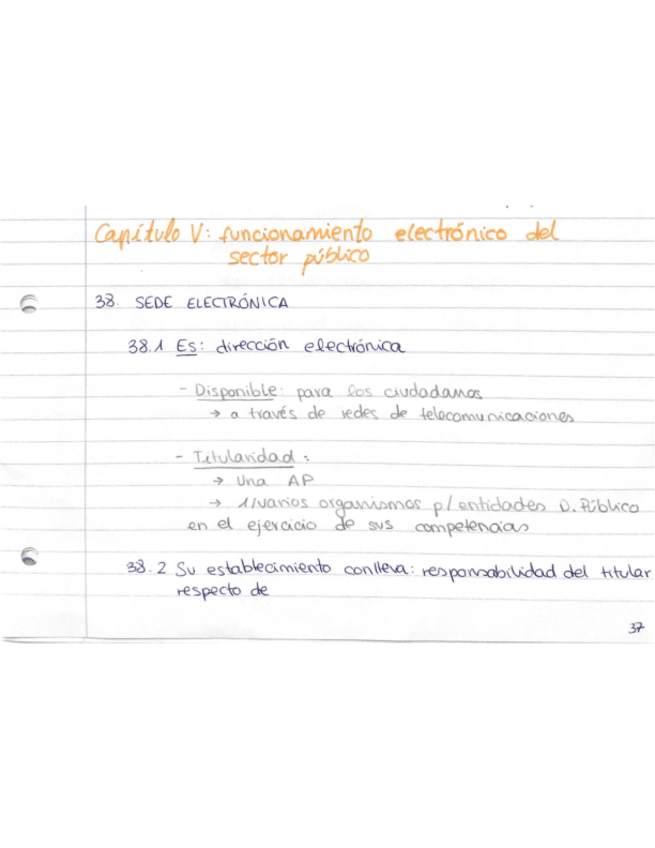 Capítulo V: funcionamiento electrónico del
sector público
38. SEDE ELECTRÓNICA
38.1 Es: dirección electrónica
- Disponible: para los ciudadanos
→ a través de redes de telecomunicaciones
- Titularidad:
→ Una AP
→ 1/varios organismos p/entidades D. Público
en el ejercicio de sus competencias
38.2 Su establecimiento conlleva: responsabilidad del titular
respecto de
37